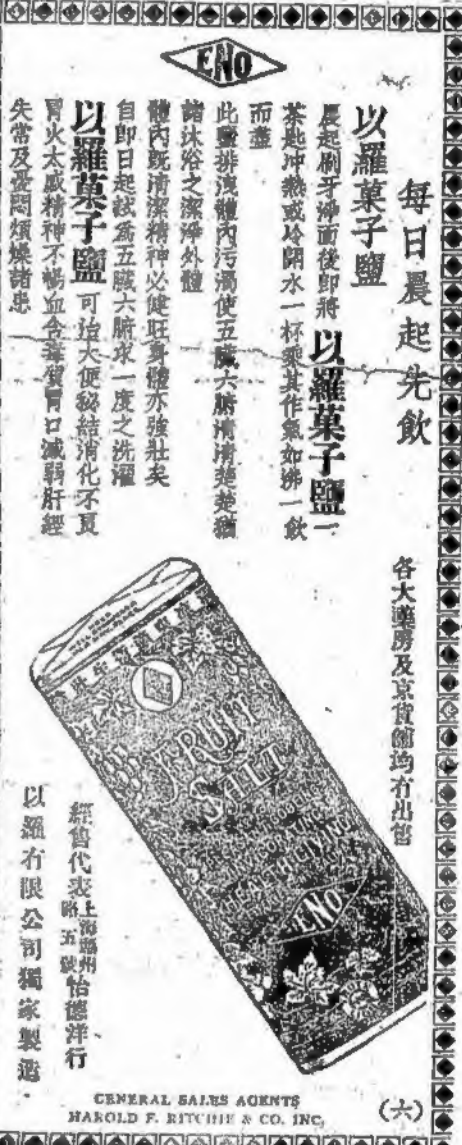 ENO
每日晨起先飲
以羅菓子鹽
晨起刷牙淨面後即將 以羅菓子鹽一
茶匙冲熱或冷開水一杯乘其作氣如沸一飲
而盡
此鹽排洩體內污濁使五臟六腑清清楚楚猶
諸沐浴之潔淨外體
體內既清潔精神必健旺身體亦強壯矣
自即日起試爲五臟六腑求一度之洗濯
以羅菓子鹽 可治大便秘結消化不良
胃火太盛精神不暢血含毒質胃口減弱肝經
失常及憂悶煩燥諸患
各大藥房及京貨舖均有出售
FRUIT
SALT
HEALTH-GIVING
ENO
經售代表上海 路五號怡德洋行
以羅有限公司獨家製造
GENERAL SALES AGENTS
HAROLD F. RITCHIE & CO. INC.
(六)